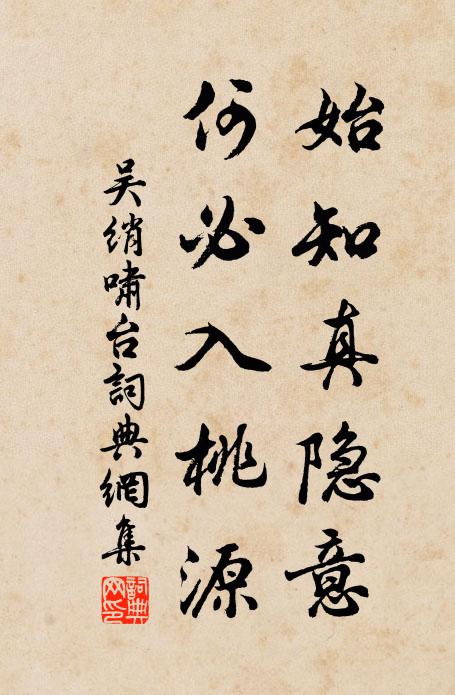 始知真隐意
何必入桃源
吴绡啸台詞典網集
詞典
网印